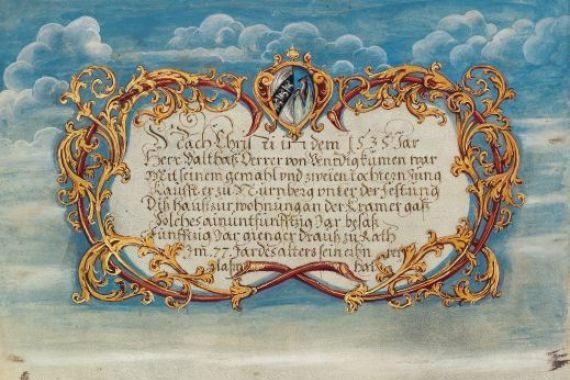 Nach Christi in dem 1535 Jar
Herr Balthaß Derrer von Venedig kumen war
Mit seinem gemahl und zweien töchtern Jung
Kaufft er zu Nürnberg unter der Festung
Diß hauß zur wohnung an der Cramer gaß
Solches ainunfünfftzig Jar besaß
Fünfftzig Jar gienger drauß zu Rath
Im 77. Jar des alters sein ehn
hat